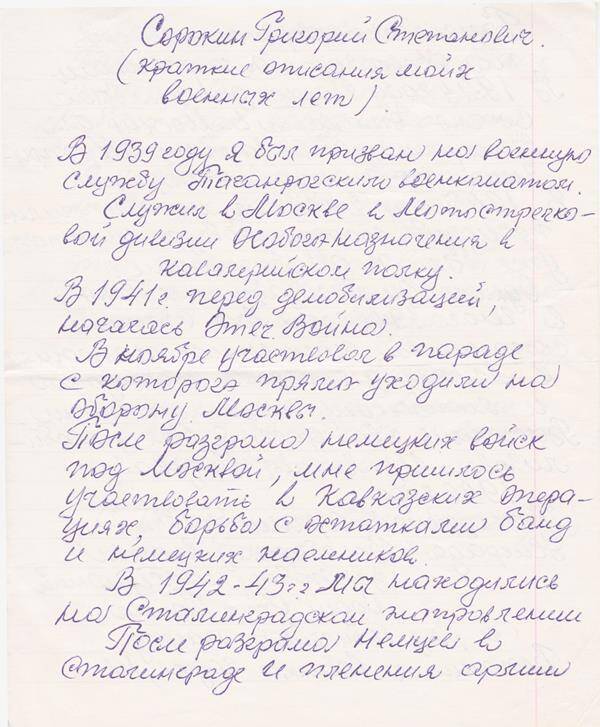 Сорокин Григорий Степанович.
(краткие описания мойх
военных лет).
В 1939 году я был призван на военную
службу Таганрогским военкоматом.
Служил в Москве в Мотострелко-
вой дивизии Особого назначения в
кавалерийском полку.
В 1941 г. перед демобилизацией,
началась Отеч. Война.
В ноябре участвовал в параде
с которого прямо уходили на
оборону Москвы.
После разгрома немецких войск
под Москвой, мне пришлось
участвовать в Кавказских опера-
циях, борьба с остатками банд
и немецких наемников.
В 1942-43 г.г Мы находились
на Сталинградском направлении
После разгрома Немцев в
Сталинграде и пленения армии